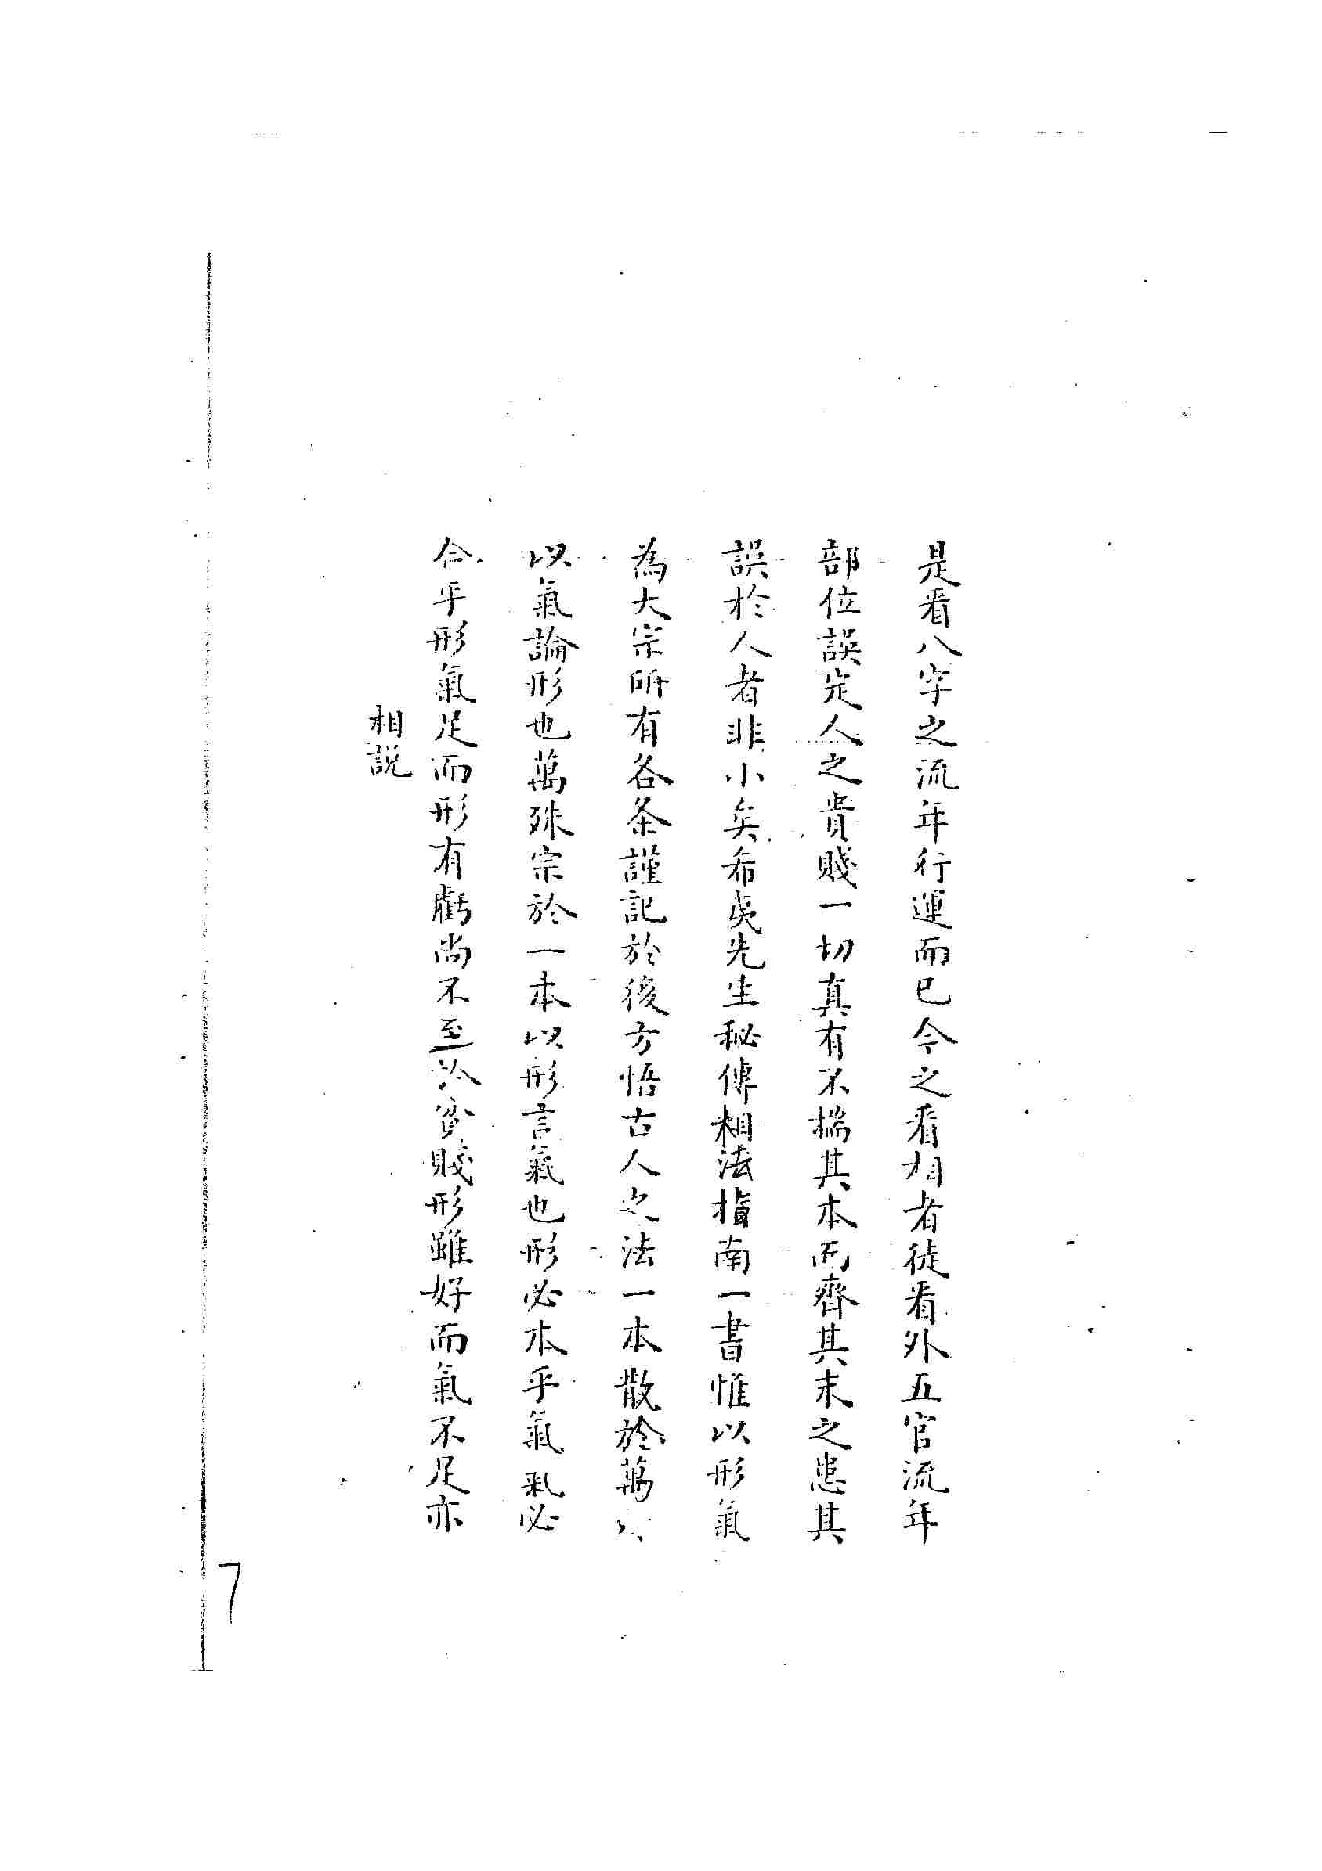 是看八字之流年行運而已今之看相者徒看外五官流年
部位誤定人之貴賤一切真有不揣其本而齊其末之患其
誤於人者非小矣希夷先生秘傳相法指南一書惟以形氣
為大宗所有各条謹記於後方悟古人之法一本散於萬
以氣論形也萬殊宗於一本以形言氣也形必本乎氣氣必
合乎形氣足而形有虧尚不至於貧賤形雖好而氣不足亦
相説
7